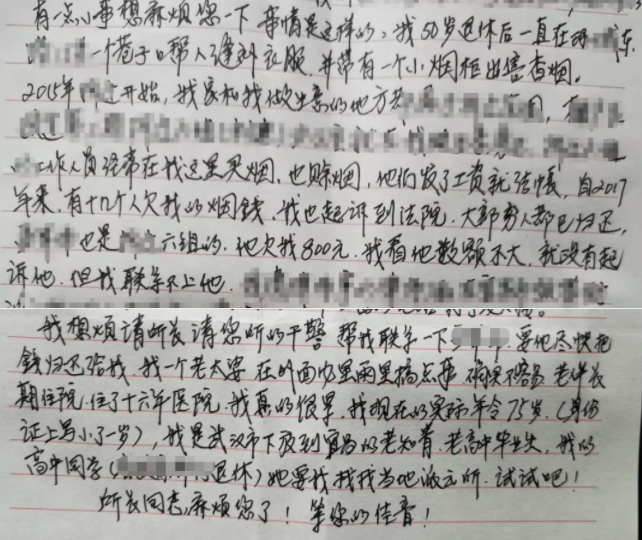 有一点小事想麻烦您一下 事情是这样的：我50岁退休后一直在 东
一个巷子口帮人缝纫衣服，并带有一个小烟柜出售香烟。
2015年 开始，我家和我做生意的地方
工作人员经常在我这里买烟，也赊烟，他们发了工资就结帐，自2017
年来，有十几个人欠我的烟錢，我也起诉到法院，大部分人都已归还，
也是 六组的，他欠我800元，我看他数额不大，就没有起
诉他，但我联系不上他，
我想烦请所长请您所的干警 帮我联系一下 要他尽快把
錢归还给我，我一个老太婆 在外面 里雨里搞点事 确实不容易 老伴长
期住院，住了十六年医院，我真的很累，我现在的实际年令75岁（身份
证上写小了一岁），我是武汉市下放到宜昌的老知青，老高中毕业生，我的
高中同学（ 退休）她要我找我当地派出所，试试吧！
所长同志，麻烦您了！等您的佳音！